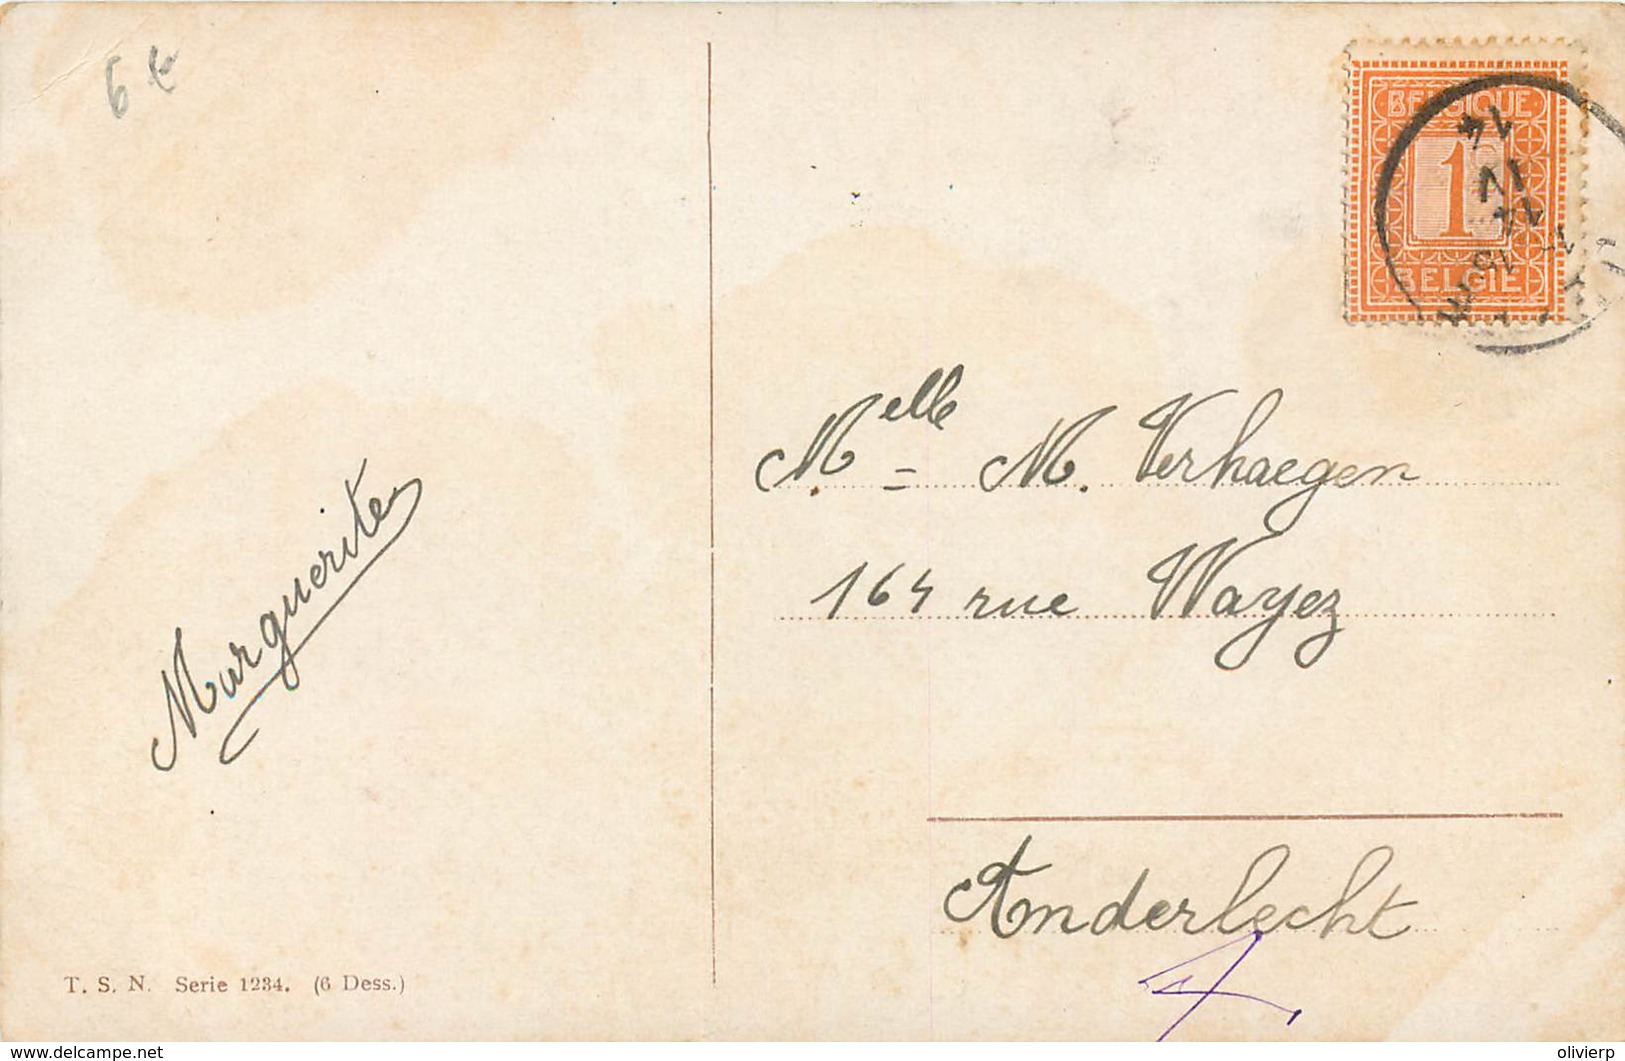 6 €
BELGIQUE
1
BELGIE
Melle M. Verhaegen
164 rue Wayez
Anderlecht
Marguerite
T. S. N. Serie 1234. (6 Dess.)
www.delcampe.net
olivierp